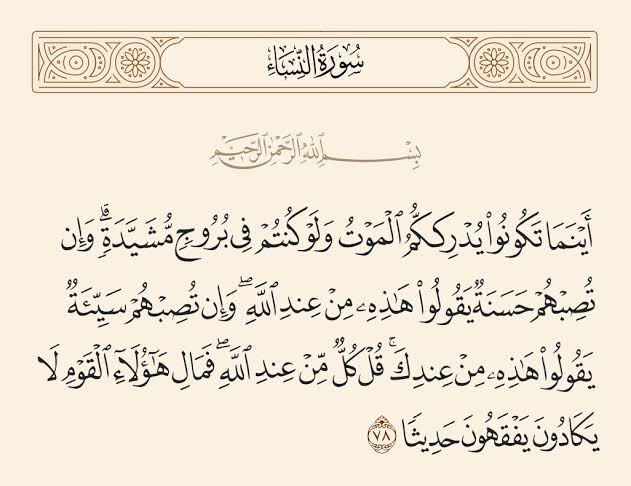 سُورَةُ النِّسَاءِ
بِسْمِ اللَّهِ الرَّحْمَٰنِ الرَّحِيمِ
أَيْنَمَا تَكُونُوا۟ يُدْرِككُّمُ ٱلْمَوْتُ وَلَوْ كُنتُمْ فِى بُرُوجٍ مُّشَيَّدَةٍ ۗ وَإِن
تُصِبْهُمْ حَسَنَةٌ يَقُولُوا۟ هَـٰذِهِۦ مِنْ عِندِ ٱللَّهِ ۖ وَإِن تُصِبْهُمْ سَيِّئَةٌ
يَقُولُوا۟ هَـٰذِهِۦ مِنْ عِندِكَ ۚ قُلْ كُلٌّ مِّنْ عِندِ ٱللَّهِ ۖ فَمَالِ هَـٰٓؤُلَآءِ ٱلْقَوْمِ لَا
يَكَادُونَ يَفْقَهُونَ حَدِيثًا ٧٨